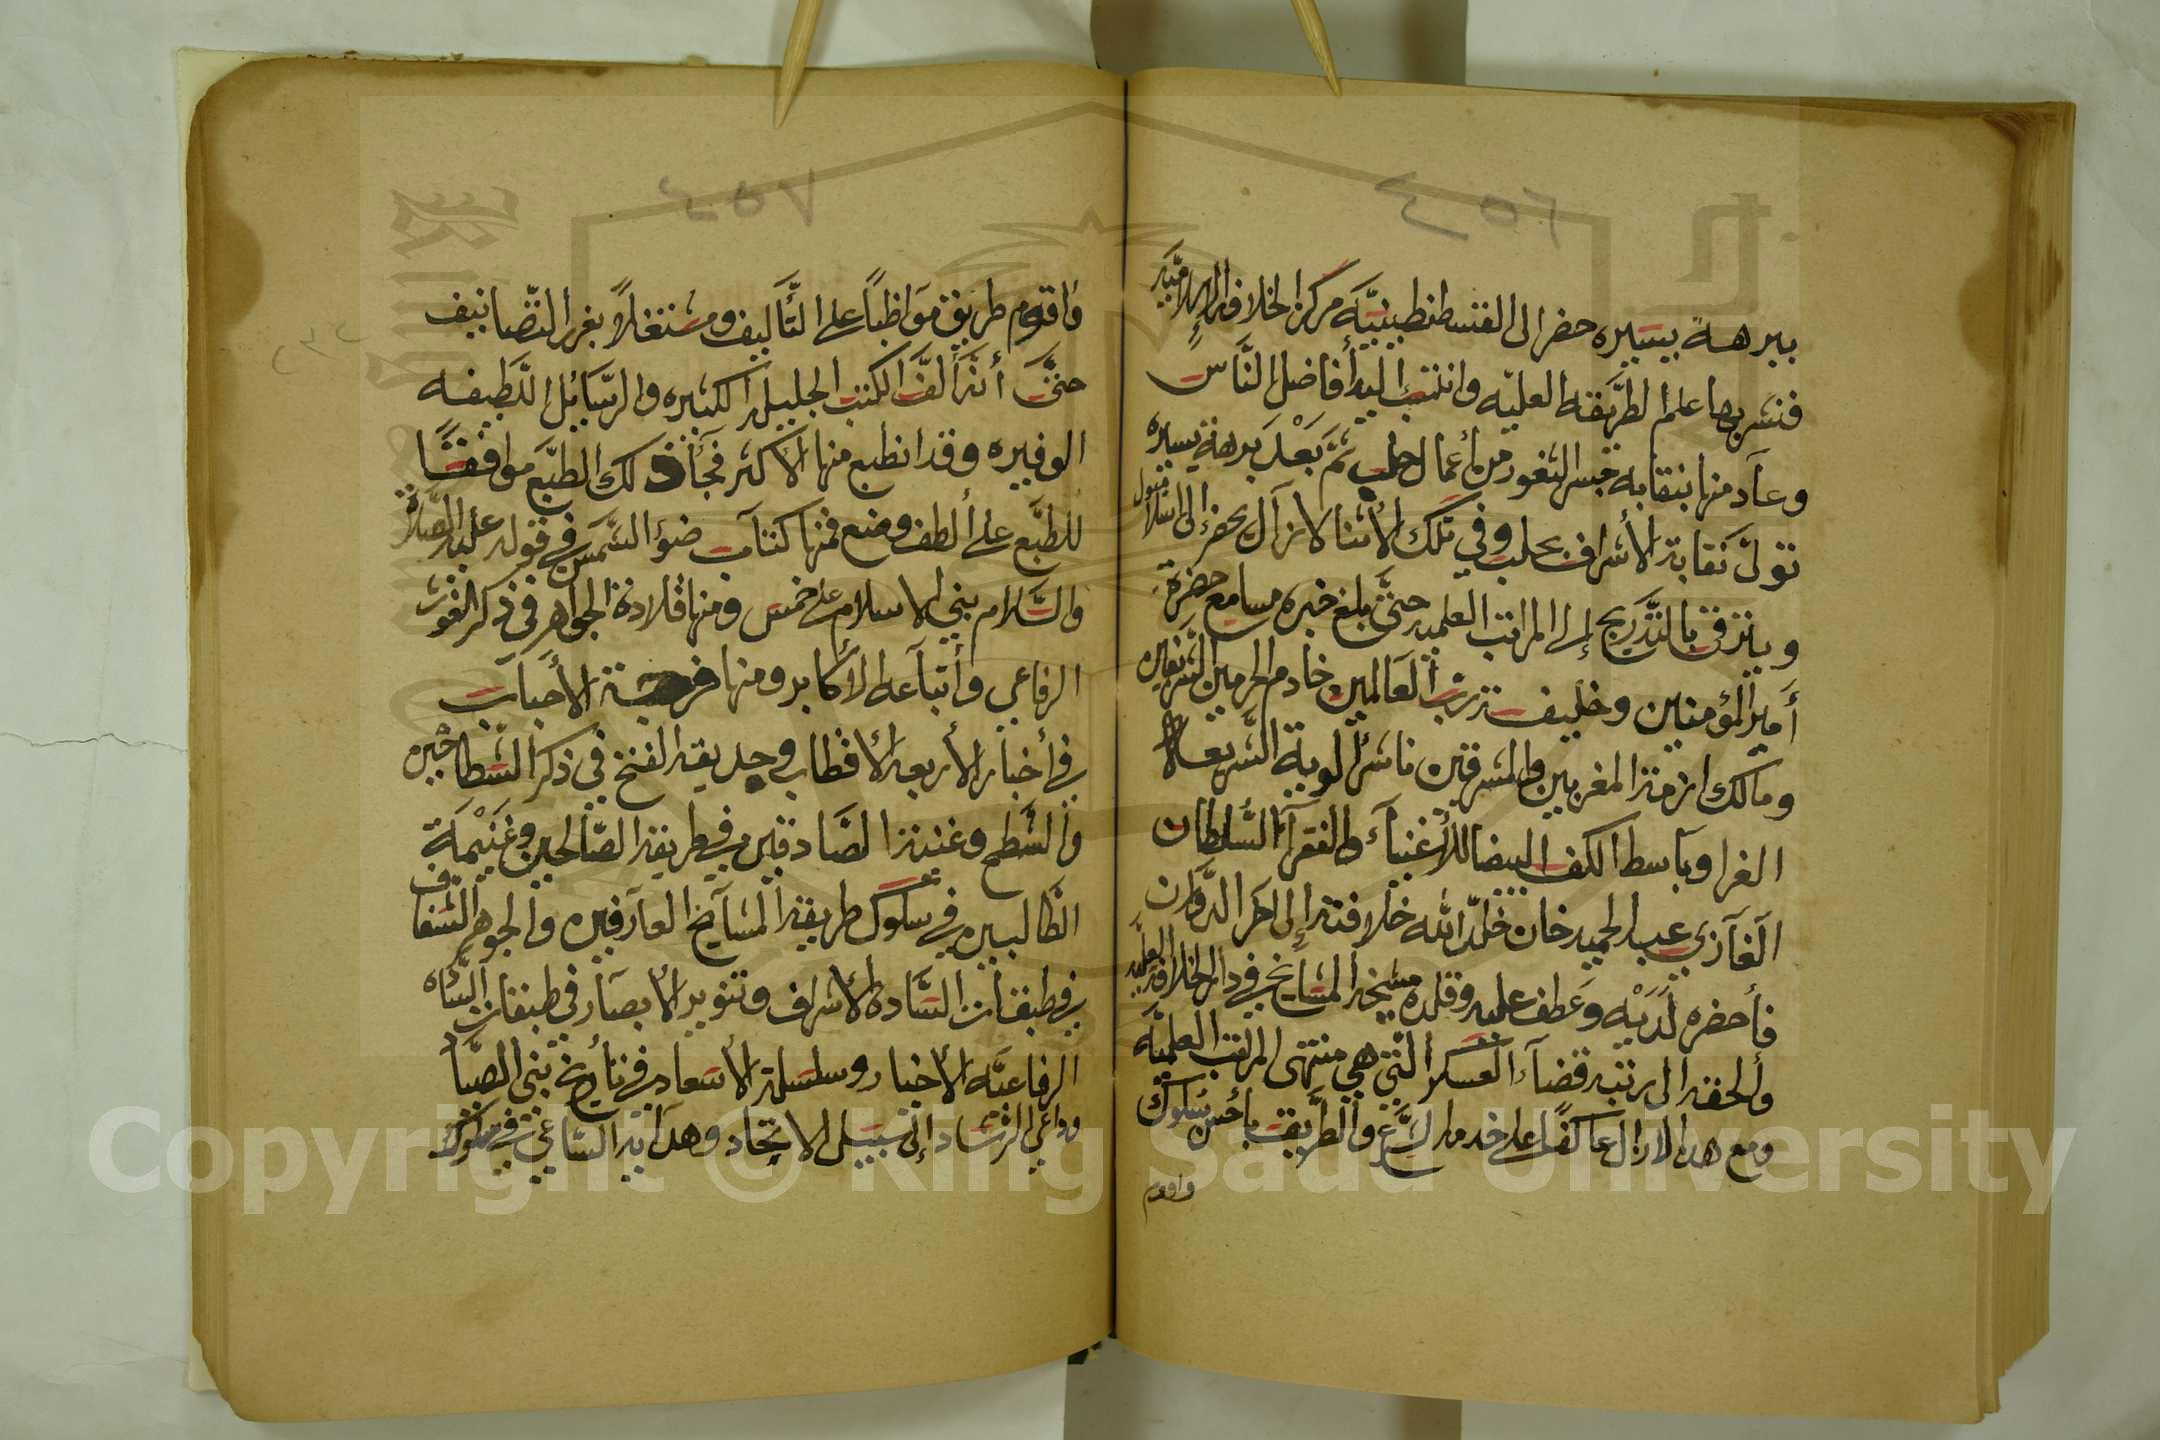 ٢٥٦
ببرهة يسيره حضر الى القسطنطينيَّه مركز الخلافة الاسلاميَّه
فنشر بها علم الطَّريقه العليّه وانتسب اليه أفاضل النَّاس
وعاد منها بنقابه جسر الشغور من أعمال حلب ثمَّ بَعْدَ برهة يسيره
تولَّى نقابة الأشراف بحلب وفي تلك الأثنا لازال يحضر إلى اسلامبول
ويترقى بالتَّدريج إلى المراتب العلميه حتَّى بلغ خبره مسامع حضرة
أمير المؤمنين وخليفة رب العالمين خادم الحرمين الشَّريفين
ومالك ازمة المغربين والمشرقين ناشر ألوية الشَّريعة
الغرا وباسط الكف البيضا للأغنيآء والفقرآء السُّلطان
الغازي عبد الحميد خان خلَّد الله خلافته إلى آخر الدَّوران
فأحضره لَدَيْه وَعطف عليه وقلده مشيخة المشايخ في دار الخلافة العليَّه
وألحقه الى رتبة قضآء العسكر الَّتي هي منتهى المراتب العلميَّه
ومع هذا لازال عاكفاً على خدمة الشَّرع والطَّريقة بأحسن سلوك
واقوم
٢٥٧
وأقوم طريق مواظباً على التَّأليف ومشتغلاً بغرر التَّصانيف
حتَّى أنَّه ألَّف الكتب الجليله الكثيره والرسَّايل اللَّطيفه
الوفيره وقد انطبع منها الأكثر فجآء ذلك الطبَّع موافقاً
للطبَّع على ألطف وضع فمنها كتاب ضوء الشَّمس في قوله عليه الصلاة
والسَّلام بني الاسلام على خمس ومنها قلادة الجواهر في ذكر الغوث
الرفاعي وأتباعه الأكابر ومنها فرحة الأحباب
في أخبار الأربعه الأقطاب وحديقة الفتح في ذكر الشطَّاحين
والشَّطح وعدة الصَّادقين في طريقة الصَّالحين وغنيْمَة
الطَّالبين في سلوك طريقة المشآيخ العارفين والجوهر الشفاف
في طبقات السَّادة الأشراف وتنوير الأبصار في طبقات السَّاده
الرفاعيَّه الأخيار وسلسلة الأسعاد في تأريخ بني الصيَّاد
وداعي الرشاد إلى سبيل الاتحاد وهداية الساعي في سلوك